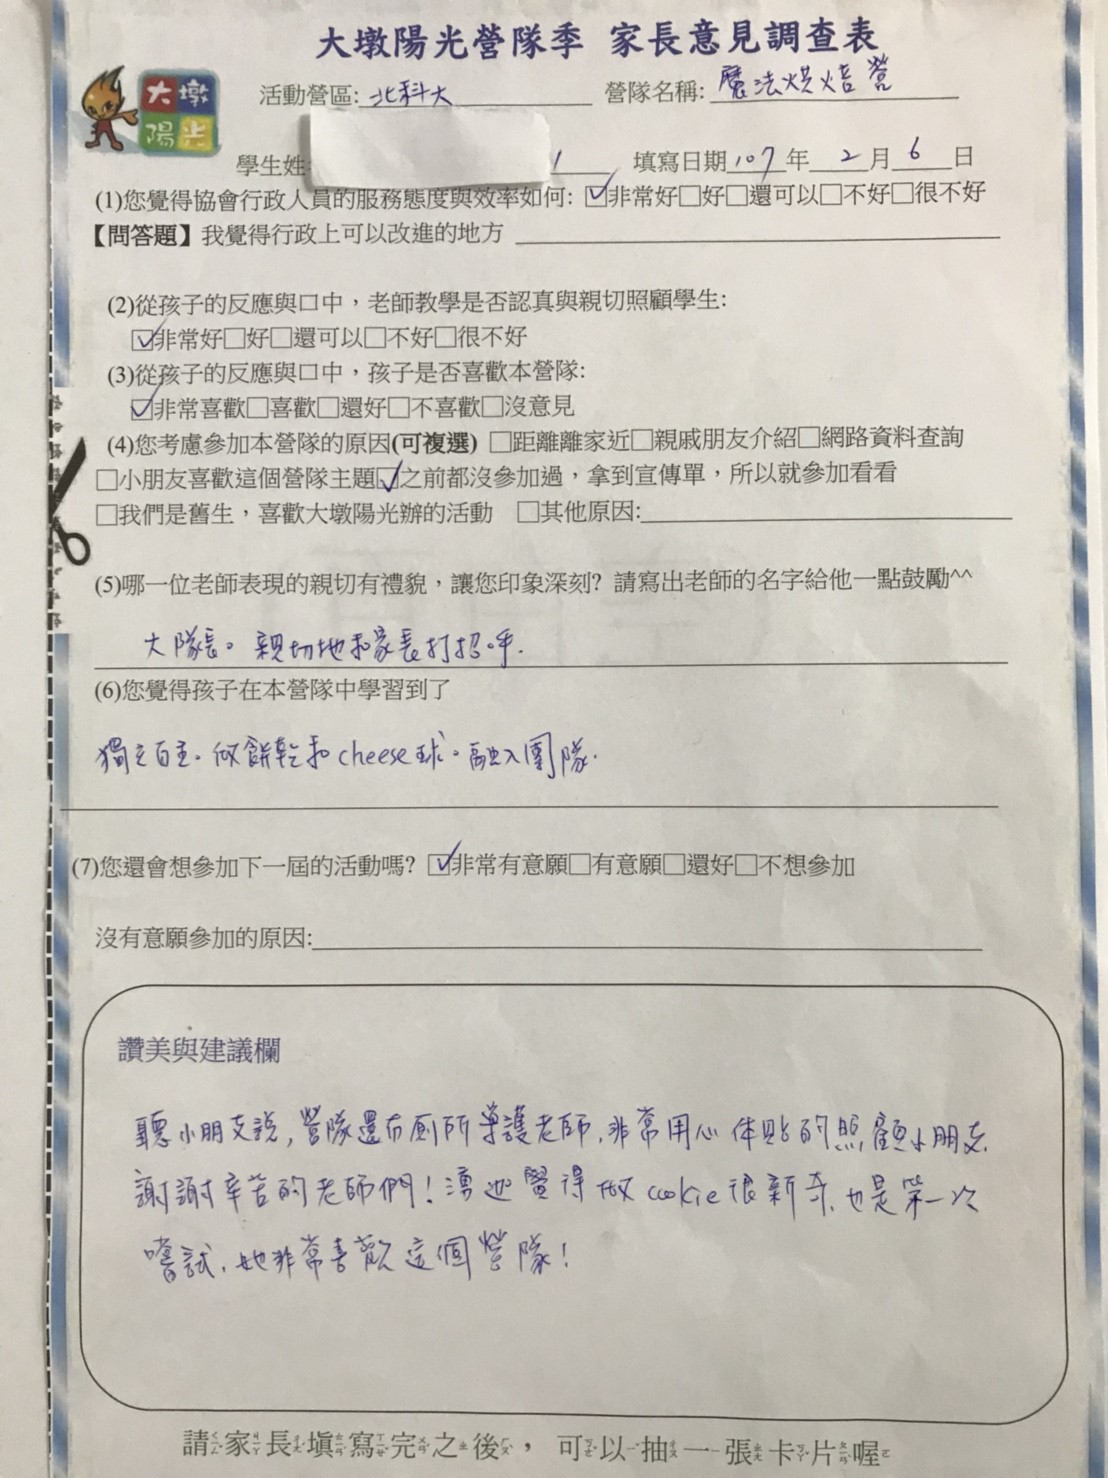 大墩陽光營隊季 家長意見調查表
大墩
陽光
活動營區:北科大 營隊名稱:魔法烘焙營
學生姓 填寫日期107年2月6日
(1)您覺得協會行政人員的服務態度與效率如何:☑非常好□好□還可以□不好□很不好
【問答題】我覺得行政上可以改進的地方
(2)從孩子的反應與口中,老師教學是否認真與親切照顧學生:
☑非常好□好□還可以□不好□很不好
(3)從孩子的反應與口中,孩子是否喜歡本營隊:
☑非常喜歡□喜歡□還好□不喜歡□沒意見
(4)您考慮參加本營隊的原因(可複選) □距離離家近□親戚朋友介紹□網路資料查詢
□小朋友喜歡這個營隊主題☑之前都沒參加過,拿到宣傳單,所以就參加看看
□我們是舊生,喜歡大墩陽光辦的活動 □其他原因:
(5)哪一位老師表現的親切有禮貌,讓您印象深刻? 請寫出老師的名字給他一點鼓勵^^
大隊長。親切地和家長打招呼.
(6)您覺得孩子在本營隊中學習到了
獨立自主。做餅乾和cheese球。融入團隊.
(7)您還會想參加下一屆的活動嗎? ☑非常有意願□有意願□還好□不想參加
沒有意願參加的原因:
讚美與建議欄
聽小朋友說,營隊還有廁所導護老師,非常用心体貼的照顧小朋友.
謝謝辛苦的老師們!湧 覺得做cookie很新奇,也是第一次
嚐試,她非常喜歡這個營隊!
請家長填寫完之後,可以抽一張卡片喔